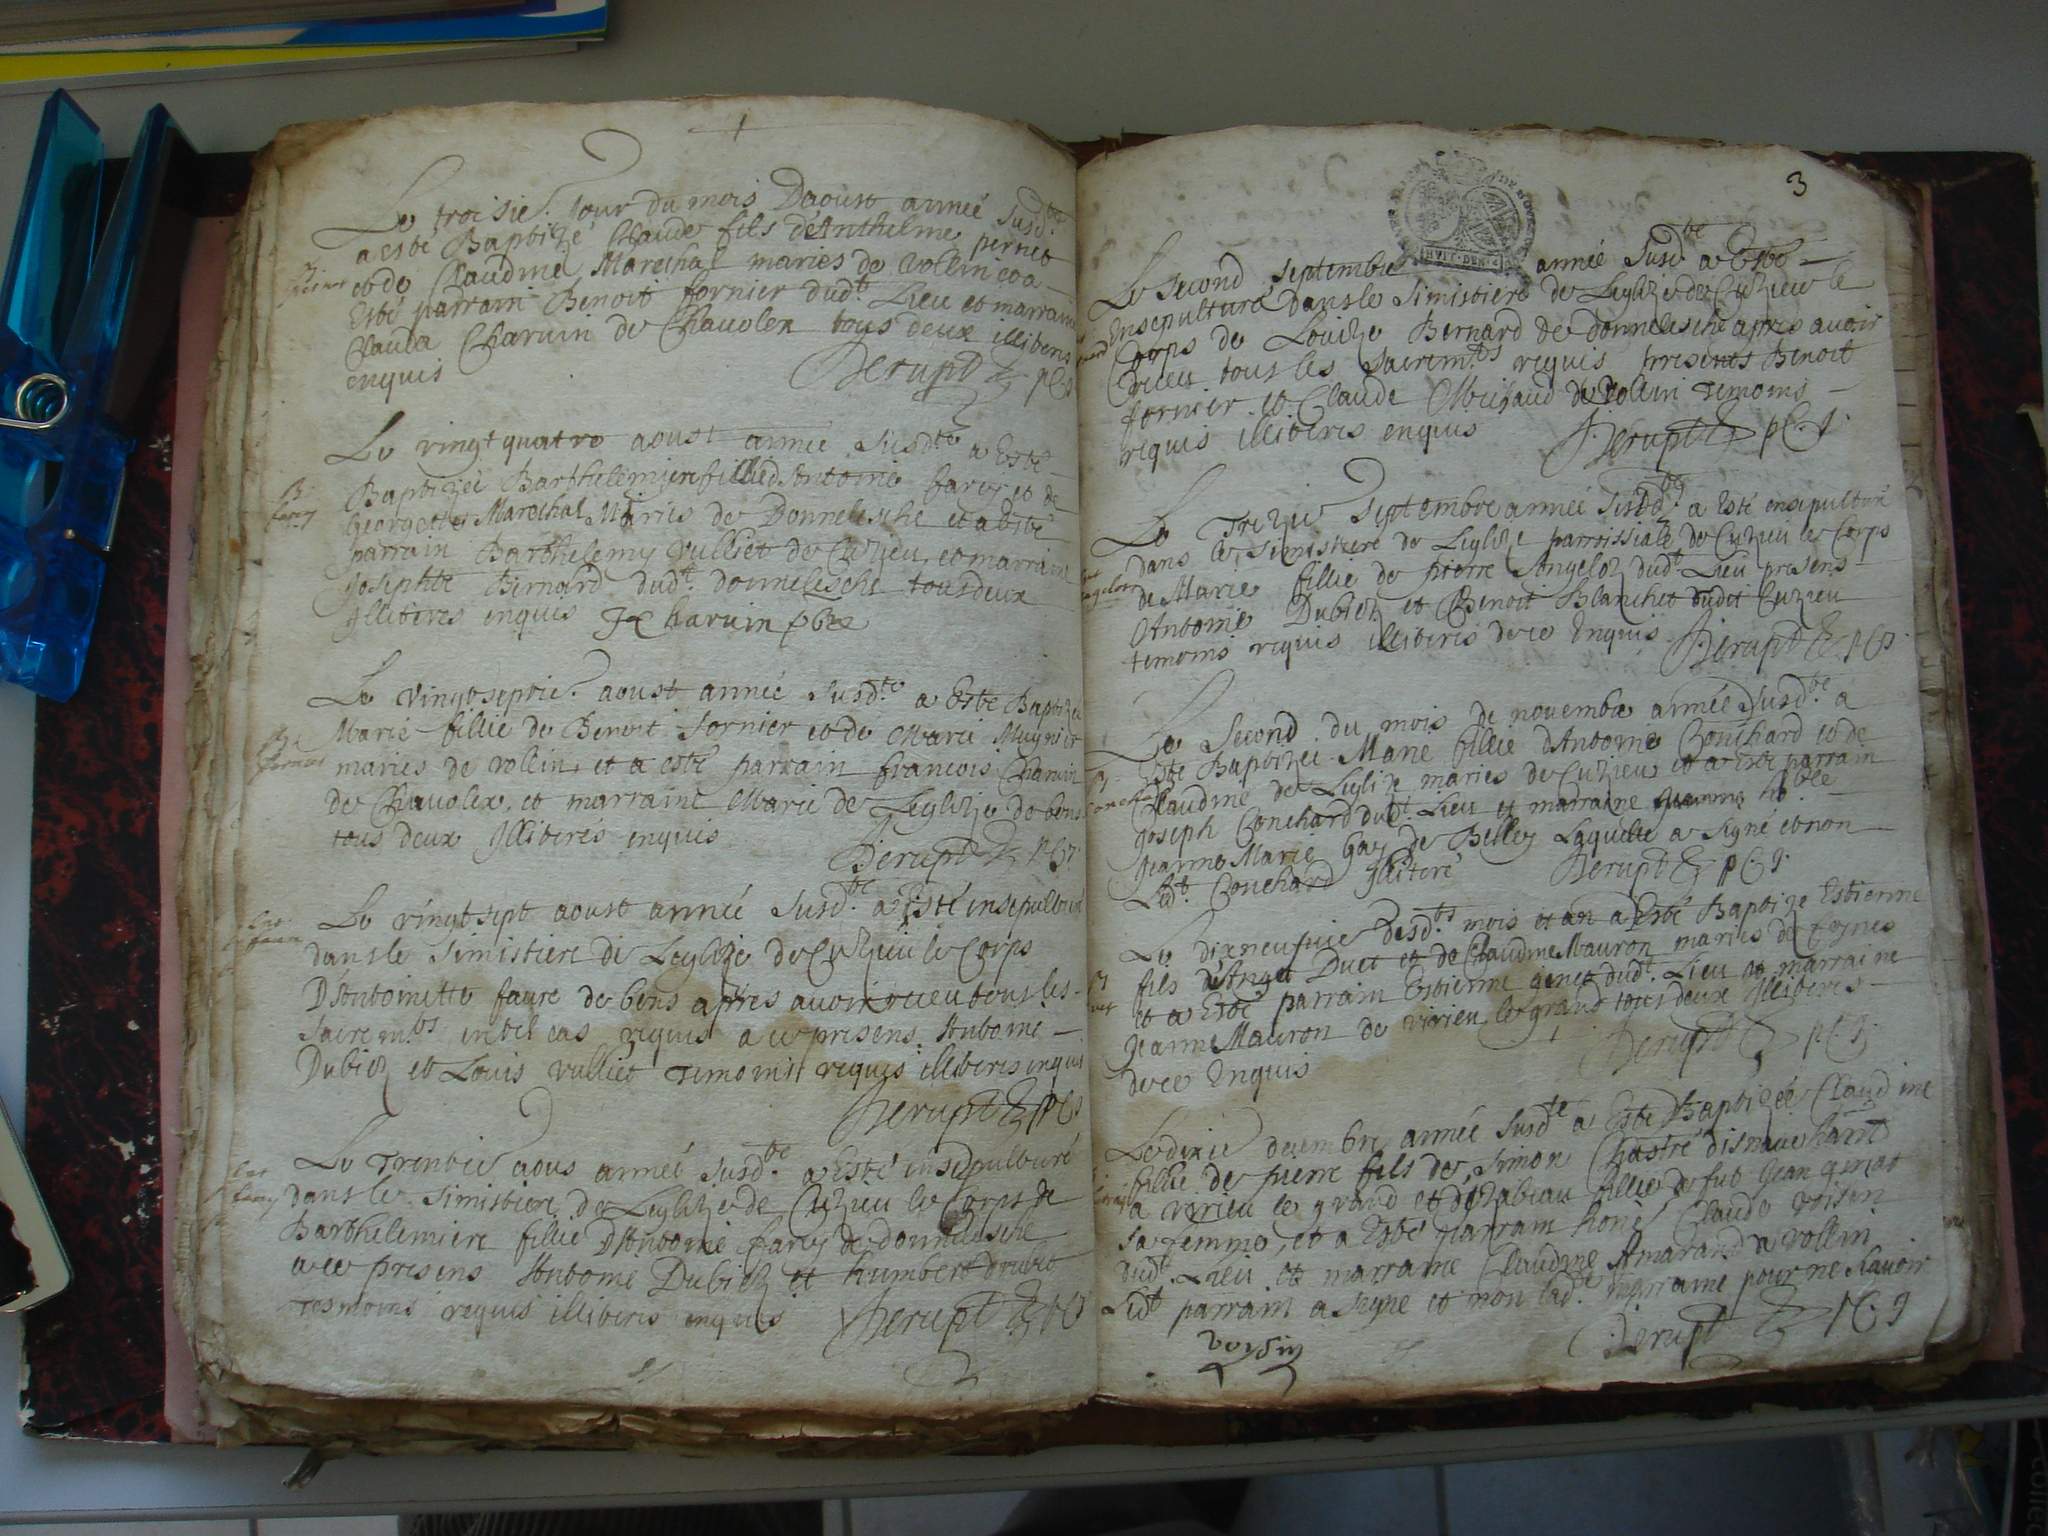 Le troisie. Jour du mois Daoust année Susd.te
a esté Baptizé Claude fils d'Anthelme pernet
et de Claudine Marechal maries de Vollin et a
Esté parrain Benoit fornier dud.t Lieu et marraine
Clauda Charuin de Chauolex tous deux illiberes
enquis
Derupt p C
Le vingt quatre aoust année Susd.te a Esté
Baptizée Barthelemiere fillie d'Antoine favre et de
Georgette Marechal Maries de Donnelesche et a Esté
parrain Barthelemy Vulliet de Cuzieu, et marraine
Josephte Bernard dud.t donnelesche tous deux
Illiberes enquis J Charuin pbre
Le vingtseptie. aoust année Susd.te a Esté Baptizée
Marie fillie de Benoit fornier et de Marie Mugnier
maries de vollin, et a esté parrain francois Charuin
de Chauolex, et marraine Marie de Leglize de bons
tous deux Illiberes enquis
Derupt p C
Le vingt sept aoust année Susd.te a Esté insepulturé
dans le Simistiere de Leglize de Cuzieu le Corps
D'Antoinette faure de bons apres avoir receu tous les
Sacrem.ts en tel cas requis a ce presens Antoine
Dubiez et Louis vulliet Temoins requis illiberes enquis
Derupt p C
Le Trentie aous année Susd.te a Esté insepulturé
dans le Simistiere de Leglize de Cuzieu le Corps de
Barthelemiere fillie D'Antoine favre de donnelesche
a ce presens Antoine Dubiez et humbert drubet
Tesmoins requis illiberes enquis Derupt p C
3
HUIT DEN
Le Second Septembre année Susd.te a Esté
Ensepulturé dans le Simistiere de Leglize de Cuzieu le
Corps de Louize Bernard de donnelesche apres avoir
receu tous les Sacrem.ts requis presents Benoit
fornier et Claude Michaud de Vollin Temoins
requis illiberes enquis Derupt p C. J.
Le Trezie Septembre année Susd.te a Esté ensepulturé
dans le Simistiere de Leglize parroissiale de Cuzieu le Corps
de Marie fillie de pierre Angeloz dud.t Lieu presens
Antoine Dubiez et Benoit Blanchet dudit Cuzieu
temoins requis illiberes de ce Enquis Derupt p C
Le Second du mois de novembre année Susd.te a
Esté Baptizee Marie fillie d'Antoine Conchard et de
Claudine de Leglize maries de Cuzieu et a Esté parrain
Joseph Conchard dud.t Lieu et marraine ho.ble
Jeanne Marie Gay de Belley Laquelle a Signé et non
Led.t Conchard Illiteré Derupt p C. J.
Le dixneufuie desd.ts mois et an a Esté Baptize Estienne
fils d'Anget Duet et de Claudine Mauron maries de
et a Esté parrain Estienne genet dud.t Lieu et marraine
Jeanne Mauron de virieu le grand tous deux Illiberes
de ce Enquis Derupt p C. J.
Le dixie decembre année Susd.te a Esté Baptizée Claudine
fillie de pierre fils de Simon Chastre
a virieu le grand et fillie de fut Jean
Sa femme, et a Esté parrain hone Claude voisin
dud.t Lieu et marraine Claudine Amarand a vollin
Led.t parrain a Signe et non lad.te marraine pour ne Scavoir
voysin Derupt p C. J